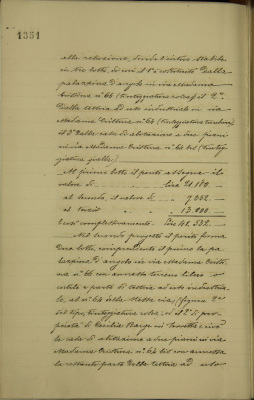 1351
alla relazione, divide l'intero stabile
in tre lotti, di cui il 1° è costituito dalla
palazzina d'angolo in via Madama
Cristina n° 66 (tinteggiatura rosa), il 2°
dalla tettoia ad uso industriale in via
Madama Cristina n° 64 (tinteggiatura
il 3° dalla casa di abitazione a due piani
in via Madama Cristina n° 62 bis (tinteg-
giatura gialla).
Al primo lotto il perito assegna il
valore di Lire 21.000. —
al secondo, il valore di " 7.552. —
al terzo " 13.000. —
Così complessivamente Lire 41.552. —
Nel secondo progetto il perito forma
due lotti, comprendenti il primo la pa-
lazzina d'angolo in via Madama Cristi-
na n° 66 con annesso terreno libero
cortile e parte di tettoia ad uso industria-
le, al n° 64 della stessa via, (figura 2ª
del tipo, tinteggiatura rosa), e il 2° di pro-
prietà di Cecilia Barge in
la casa di abitazione a due piani in via
Madama Cristina n° 62 bis con annessa
la restante parte della tettoia ad uso